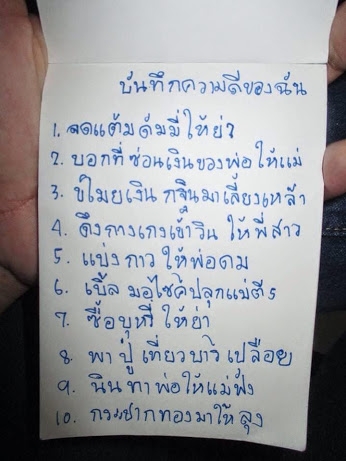 บันทึกความดีของฉัน
1. จดแต้มดัมมี่ให้ย่า
2. บอกที่ซ่อนเงินของพ่อให้แม่
3. ขโมยเงินกฐินมาเลี้ยงเหล้า
4. ดึงกางเกงเข้าวินให้พี่สาว
5. แบ่งกาวให้พ่อดม
6. เบิ้ลมอไซค์ปลุกแม่ตี5
7. ซื้อบุหรี่ให้ย่า
8. พาปู่เที่ยวบาร์เปลือย
9. นินทาพ่อให้แม่ฟัง
10. กระชากทองมาให้ลุง